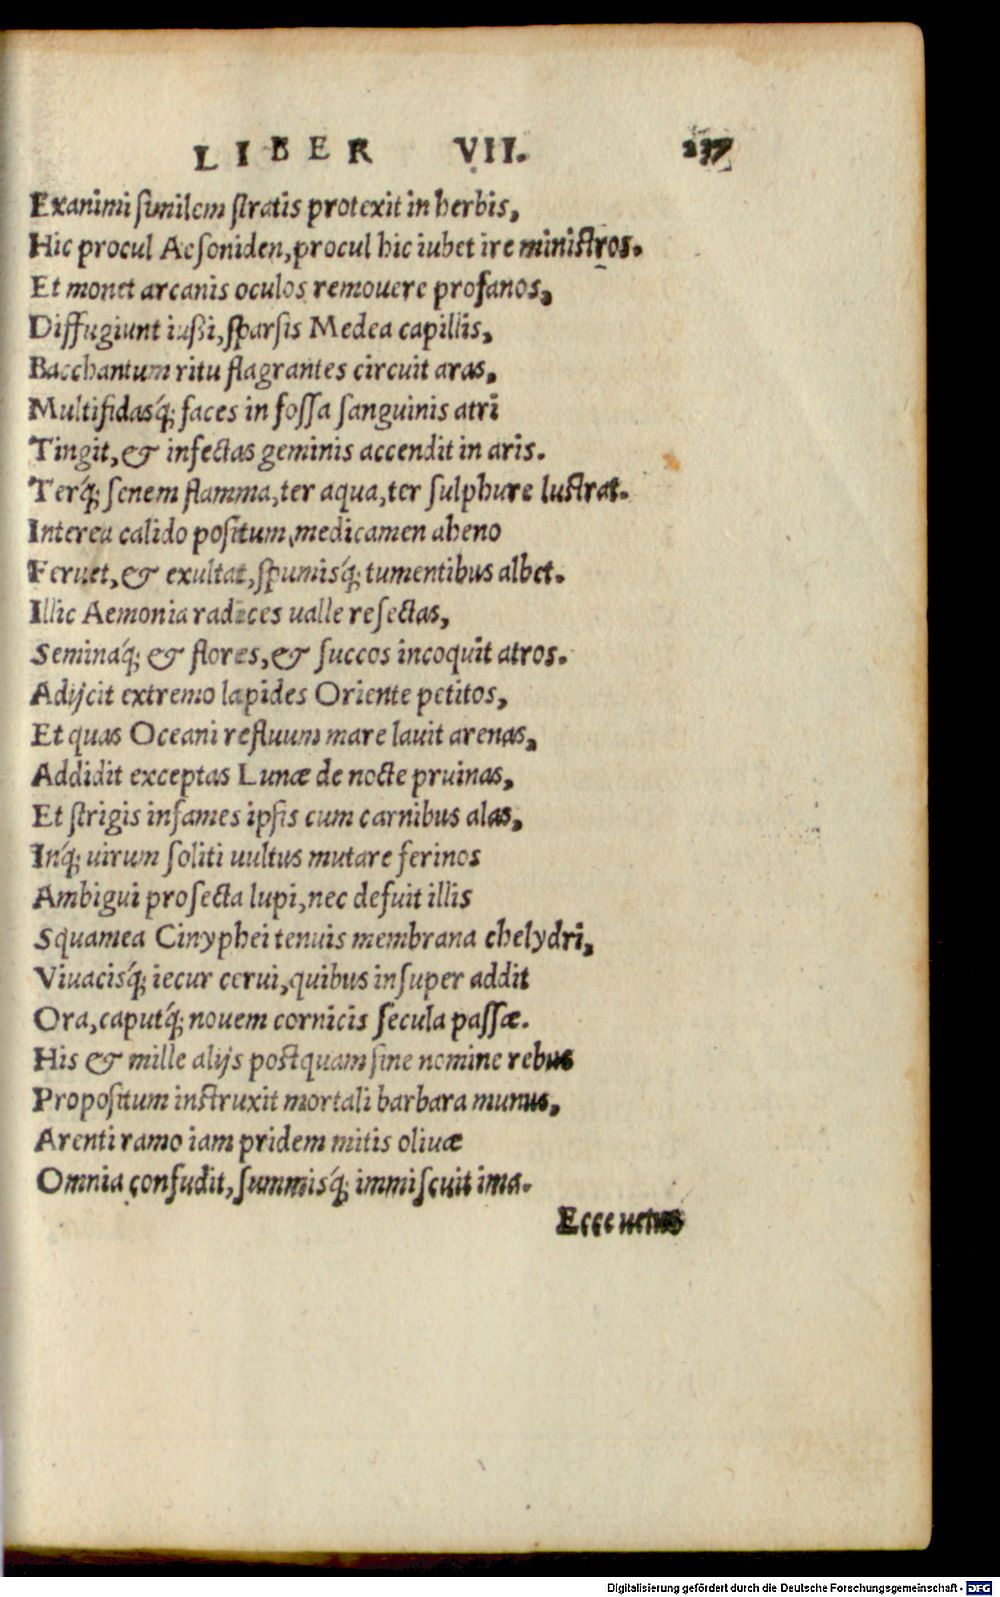 LIBER VII. 237
Exanimi similem stratis protexit in herbis,
Hic procul Aesoniden, procul hic iubet ire ministros.
Et monet arcanis oculos remouere profanos,
Diffugiunt iußi, sparsis Medea capillis,
Bacchantum ritu flagrantes circuit aras,
Multifidasq́; faces in fossa sanguinis atri
Tingit, & infectas geminis accendit in aris.
Terq́; senem flamma, ter aqua, ter sulphure lustrat.
Interea calido positum medicamen aheno
Feruet, & exultat, spumisq́; tumentibus albet.
Illic Aemonia radices ualle resectas,
Seminaq́; & flores, & succos incoquit atros.
Adijcit extremo lapides Oriente petitos,
Et quas Oceani refluum mare lauit arenas,
Addidit exceptas Lunæ de nocte pruinas,
Et strigis infames ipsis cum carnibus alas,
Inq́; uirum soliti uultus mutare ferinos
Ambigui prosecta lupi, nec defuit illis
Squamea Cinyphei tenuis membrana chelydri,
Viuacisq́; iecur cerui, quibus insuper addit
Ora, caputq́; nouem cornicis secula passæ.
His & mille alijs postquam sine nomine rebus
Propositum instruxit mortali barbara munus,
Arenti ramo iam pridem mitis oliuæ
Omnia confudit, summisq́; immiscuit ima.
Ecce uetus
Digitalisierung gefördert durch die Deutsche Forschungsgemeinschaft - DFG